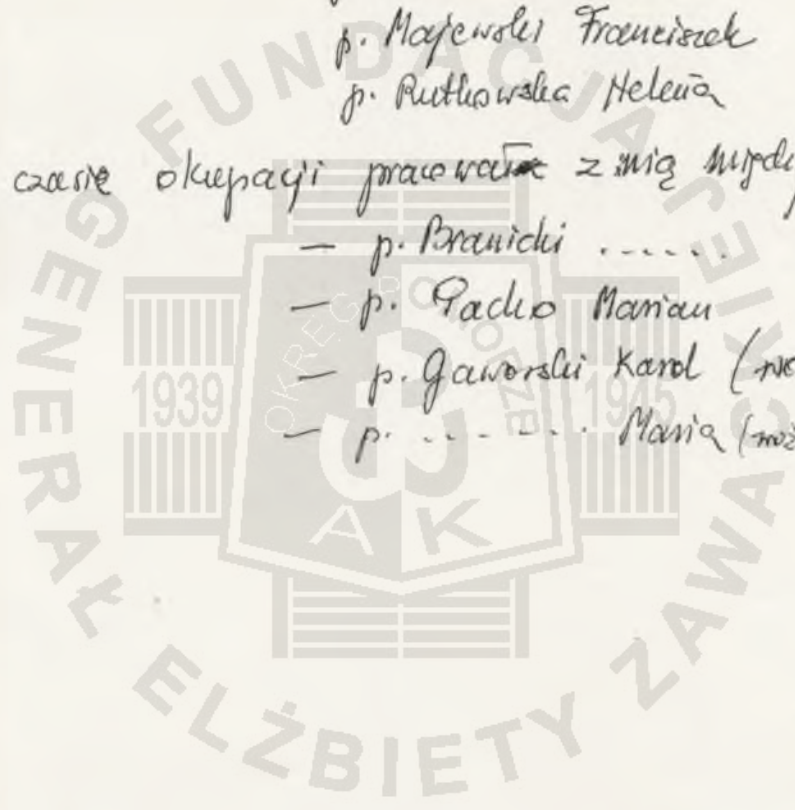 p. Majewski Franciszek
p. Rutkowska Helena
czasie okupacji pracował z nią między
— p. Branicki ......
— p. Pacho Marian
— p. Gaworski Karol (
— p. ........ Maria (moż
FUNDACJA GENERAŁ ELŻBIETY ZAWACKIEJ
OKRĘG POMORZE
1939
1945
AK